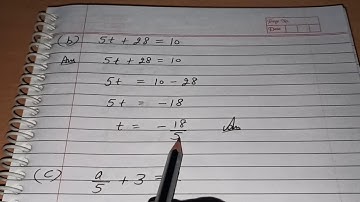 Page No.
Date
(b) 5t + 28 = 10
Ans 5t + 28 = 10
5t = 10 - 28
5t = -18
t = -18/5 Ans
(c) a/5 + 3 =